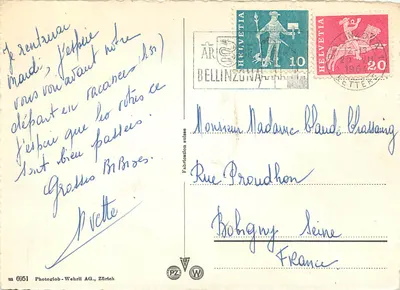 Je rentrerai
mardi, j'espère
vous voir avant notre
départ en vacances (31)
j'espère que les votres ce
sont bien passées.
Grosses Bibises.
Yvette
HELVETIA
10
HELVETIA
20
BELLINZONA
Monsieur Madame Claude Chassaing
Rue Proudhon
Bobigny Seine
France.
Fabrication suisse
6951 Photoglob-Wehrli AG., Zürich
PZ W